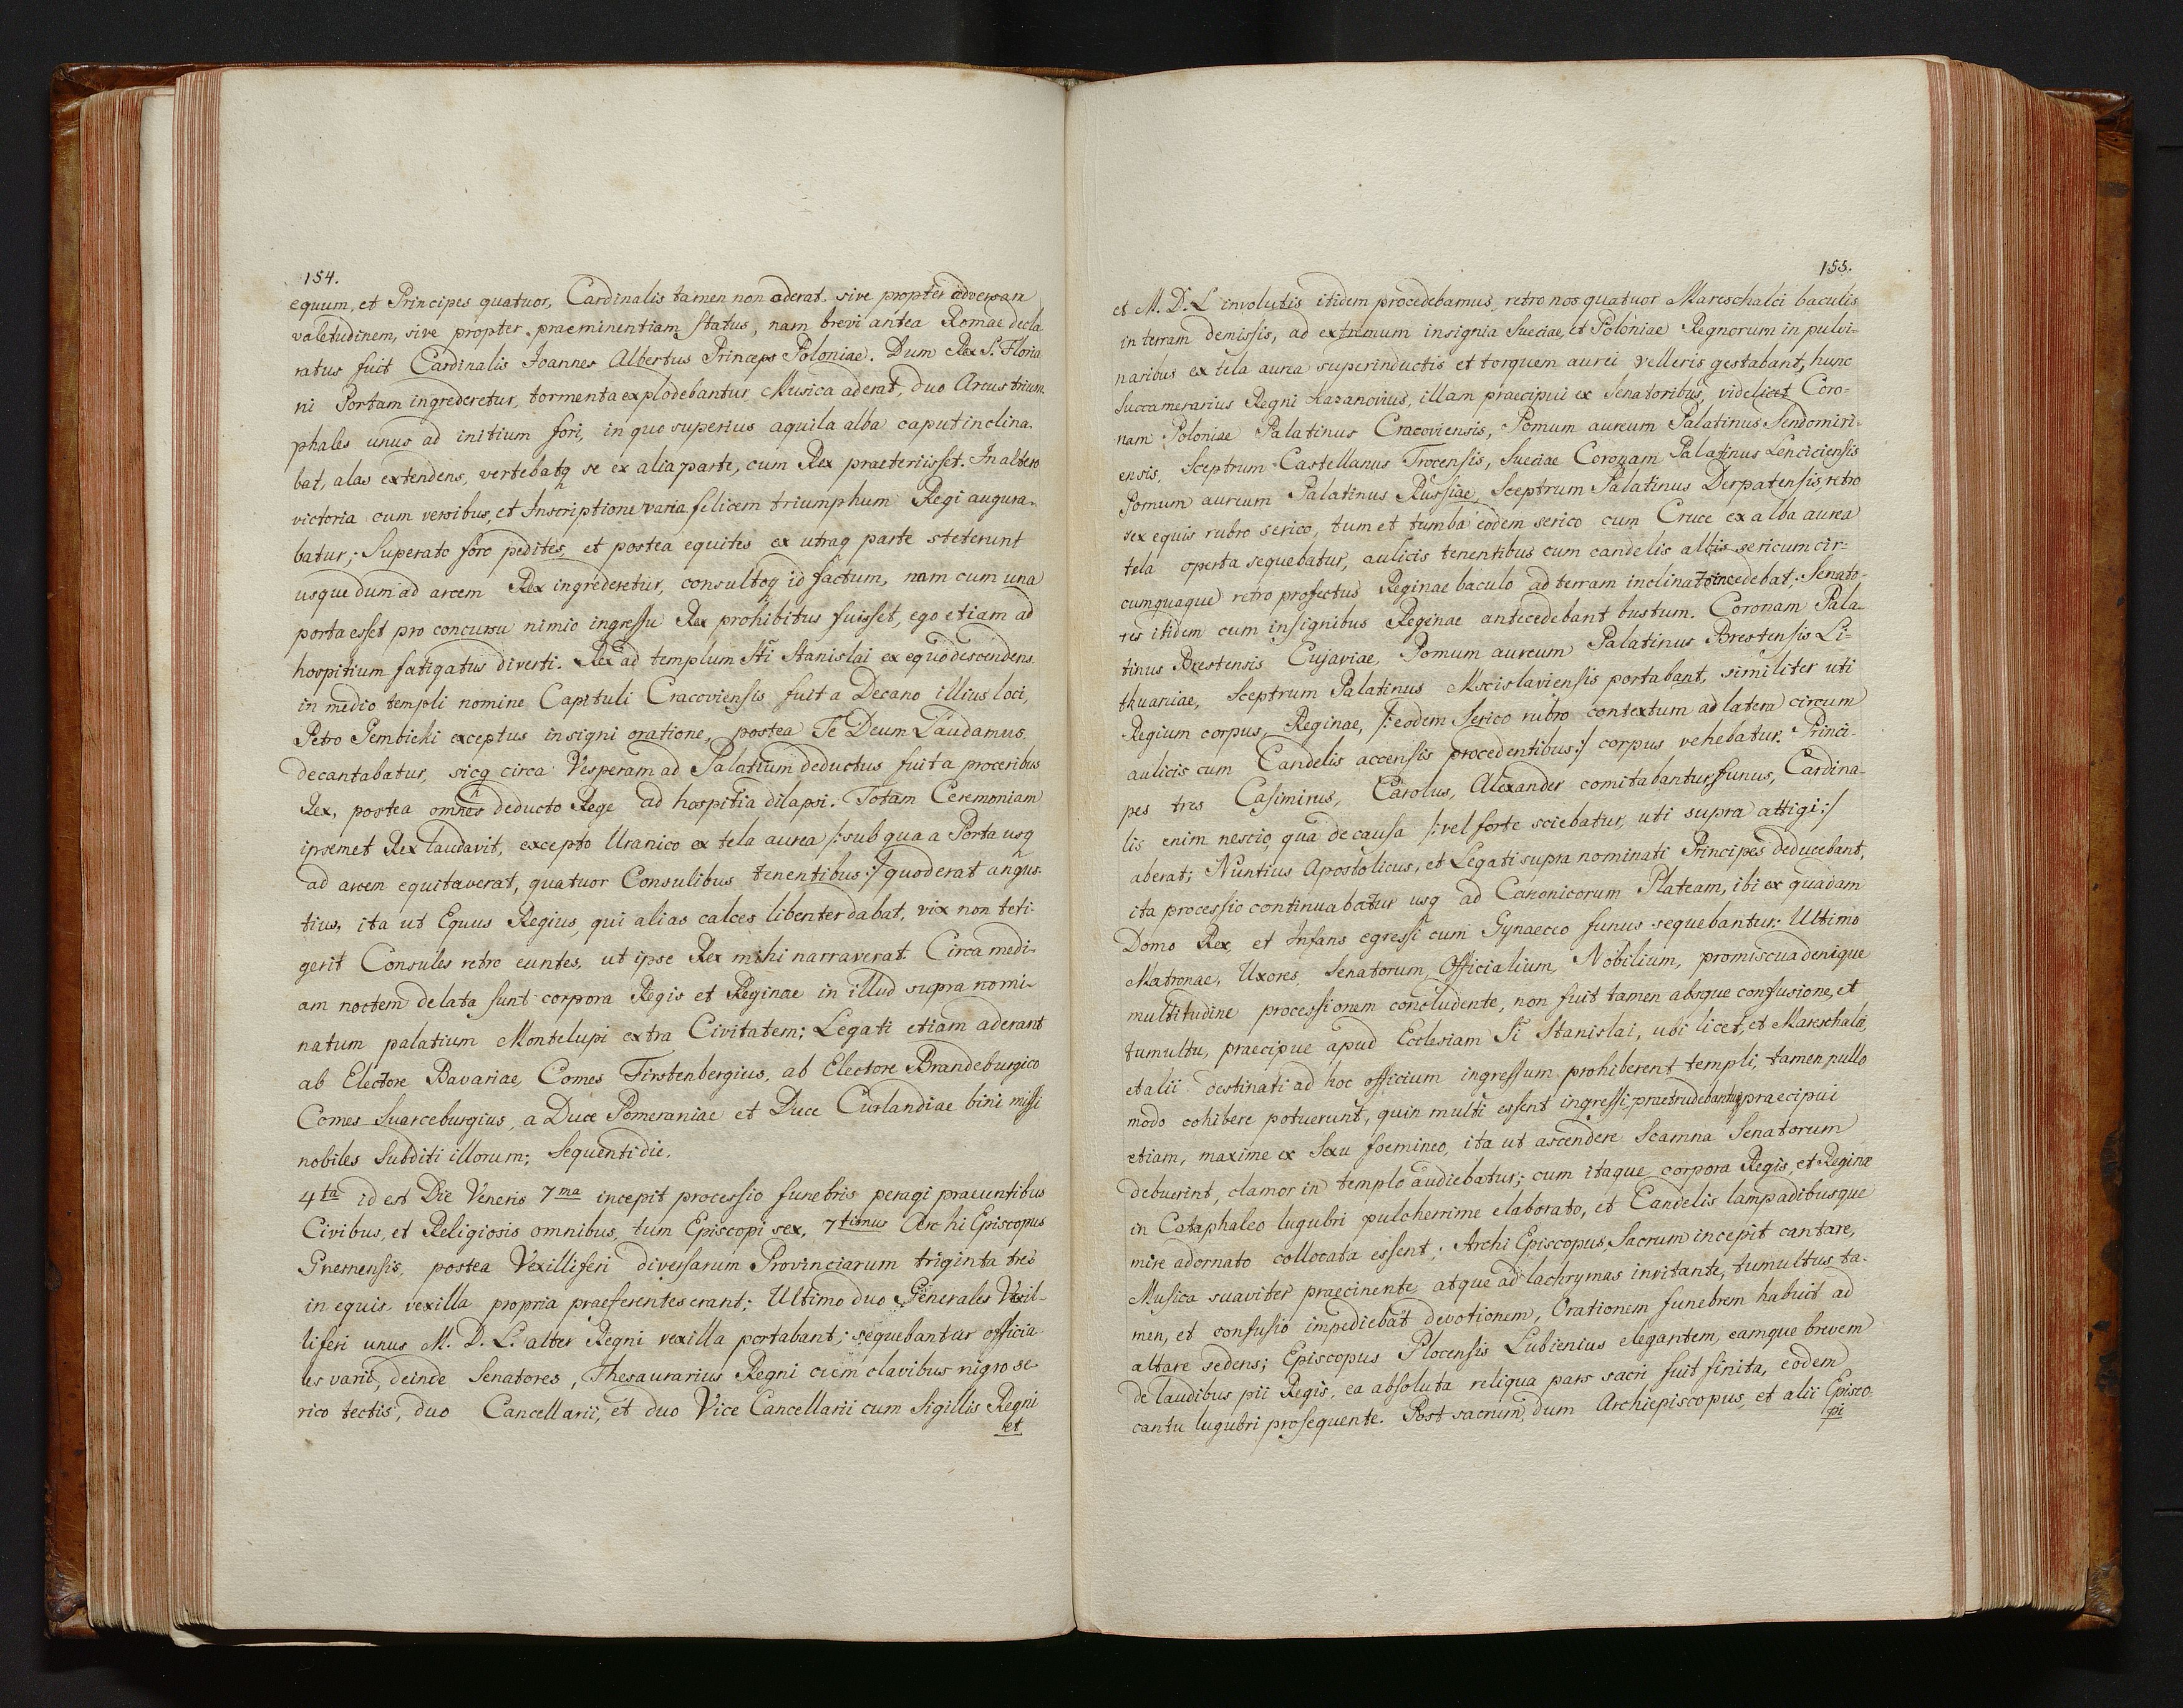 154.
equum, et Principes quatuor, Cardinalis tamen non aderat. sive propter adversan
valetudinem, sive propter praeminentiam status, nam brevi antea Romae decla
ratus fuit Cardinalis Joannes Albertus Princeps Poloniae. Dum Rex S. Floria
ni Portam ingrederetur, tormenta explodebantur, Musica aderat, duo Arcus trium
phales unus ad initium fori, in quo superius aquila alba caput inclina.
bat, alas extendens, vertebatq se ex alia parte, cum Rex praeteriisset. In altero
victoria cum versibus, et Inscriptione varia felicem triumphum Regi augura-
batur; Superato foro pedites, et postea equites ex utraq parte steterunt
usque dum ad arcem Rex ingrederetur, consultoq id factum, nam cum una
porta esset pro concursu nimio ingressu Rex prohibitus fuisset, ego etiam ad
hospitium fatigatus diverti. Rex ad templum Sti Stanislai ex equo descendens.
in medio templi nomine Capituli Cracoviensis fuit a Decano illius loci,
Petro Gembichi exceptus insigni oratione, postea Te Deum Laudamus
decantabatur, sicq circa Vesperam ad Palatium deductus fuit a proceribus
Rex, postea omnes deducto Rege ad hospitia dilapsi. Totam Ceremoniam
ipsemet Rex laudavit, excepto Uranico ex tela aurea /: sub qua a Porta usq
ad arcem equitaverat, quatuor Consulibus tenentibus :/ quod erat angus.
tius, ita ut Equus Regius, qui alias calces libenter dabat, vix non teti-
gerit Consules retro euntes, ut ipse Rex mihi narraverat. Circa medi-
am noctem delata sunt corpora Regis et Reginae in illud supra nomi-
natum palatium Montelupi extra Civitatem; Legati etiam aderant
ab Electore Bavariae, Comes Firstenbergius, ab Electore Brandeburgico
Comes Suarceburgius, a Duce Pomeraniae et Duce Curlandiae bini missi
nobiles Subditi illorum; Sequenti die,
4ta id est Die Veneris 7ma incepit processio funebris peragi praeuntibus
Civibus, et Religiosis omnibus, tum Episcopi sex, 7timus Archi Episcopus
Gnesnensis, postea Vexilliferi diversarum Provinciarum triginta tres
in equis vexilla propria praeferentes erant; Ultimo duo Generales Vexil-
liferi unus M. D. L. alter Regni vexilla portabant; sequebantur officia
les varii, deinde Senatores, Thesaurarius Regni cum clavibus nigro se
rico tectis, duo Cancellarii, et duo Vice Cancellarii cum Sigillis Regni
et
155.
et M. D. L involutis itidem procedebamus, retro nos quatuor Mareschalci baculis
in terram demissis, ad extremum insignia Sueciae, et Poloniae Regnorum in pulvi-
naribus ex tela aurea superinductis et torquem aurei velleris gestabant, hunc
Succamerarius Regni Kazanovius, illam praecipui ex Senatoribus, videlicet Coro-
nam Poloniae Palatinus Cracoviensis, Pomum aureum Palatinus Sendomiri-
ensis, Sceptrum Castellanus Trocensis, Sueciae Coronam Palatinus Lenciciensis
Pomum aureum Palatinus Russiae, Sceptrum Palatinus Derpatensis, retro
sex equis rubro serico, tum et tumba eodem serico cum Cruce ex alba aurea
tela operta sequebatur, aulicis tenentibus cum candelis albis sericum cir-
cumquaque retro profectus Reginae baculo ad terram inclinato incedebat; Senato-
res itidem cum insignibus Reginae antecedebant bustum. Coronam Pala-
tinus Brestensis Cujaviae, Pomum aureum Palatinus Brestensis Li-
thuaniae, Sceptrum Palatinus Mscislaviensis portabant, similiter uti
Regium corpus, Reginae, /: eodem Serico rubro contextum ad latera circum
aulicis cum Candelis accensis procedentibus :/ corpus vehebatur. Princi-
pes tres Casimirus, Carolus, Alexander comitabantur funus, Cardina-
lis enim nescio, qua de causa /: vel forte sciebatur, uti supra attigi :/
aberat; Nuntius Apostolicus, et Legati supra nominati Principes deducebant,
ita processio continuabatur usq ad Canonicorum Plateam, ibi ex quadam
Domo Rex, et Infans egressi cum Gynaeceo funus sequebantur. Ultimo
Matronae, Uxores, Senatorum, Officialium, Nobilium, promiscua denique
multitudine processionem concludente, non fuit tamen absque confusione, et
tumultu, praecipue apud Ecclesiam Sti Stanislai, ubi licet, et Mareschalci,
et alii destinati ad hoc officium ingressum prohiberent templi, tamen nullo
modo cohibere potuerunt, quin multi essent ingressi, praetrudebantur praecipui
etiam, maxime ex Sexu foemineo, ita ut ascendere Scamna Senatorum
debuerint, clamor in templo audiebatur; cum itaque corpora Regis, et Reginae
in Cataphalco lugubri pulcherrime elaborato, et Candelis lampadibusque
mire adornato collocata essent; Archi Episcopus Sacrum incepit cantare,
Musica suaviter praecinente atque ad lachrymas invitante, tumultus ta-
men, et confusio impediebat devotionem, Orationem funebrem habuit ad
altare sedens; Episcopus Plocensis Lubienius elegantem, eamque brevem
de laudibus pii Regis, ea absoluta reliqua pars sacri fuit finita, eodem
cantu lugubri prosequente. Post sacrum, dum Archiepiscopus, et alii Episco
pi